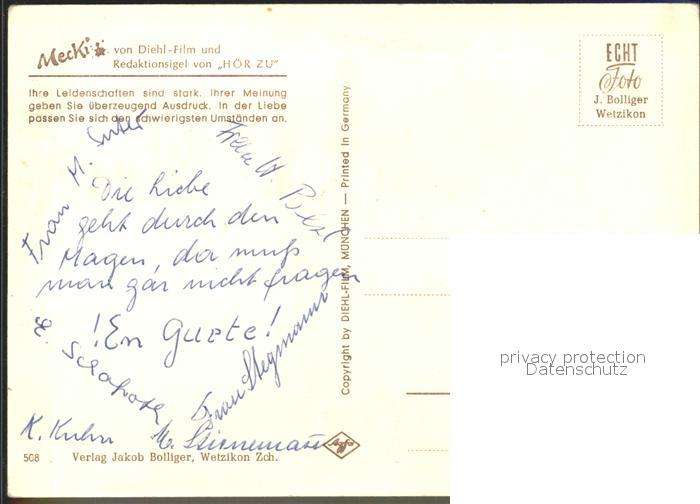 Mecki von Diehl-Film und
Redaktionsigel von „HÖR ZU"
Ihre Leidenschaften sind stark. Ihrer Meinung
geben Sie überzeugend Ausdruck. In der Liebe
passen Sie sich den schwierigsten Umständen an.
Frau M. Suter
Frau W.
Die Liebe
geht durch den
Magen, da muß
man gar nicht fragen
!En Guete!
Frau Stegmann
K. Kuhn
508 Verlag Jakob Bolliger, Wetzikon Zch.
Agfa
Copyright by DIEHL-FILM, MÜNCHEN — Printed in Germany
ECHT
Foto
J. Bolliger
Wetzikon
privacy protection
Datenschutz